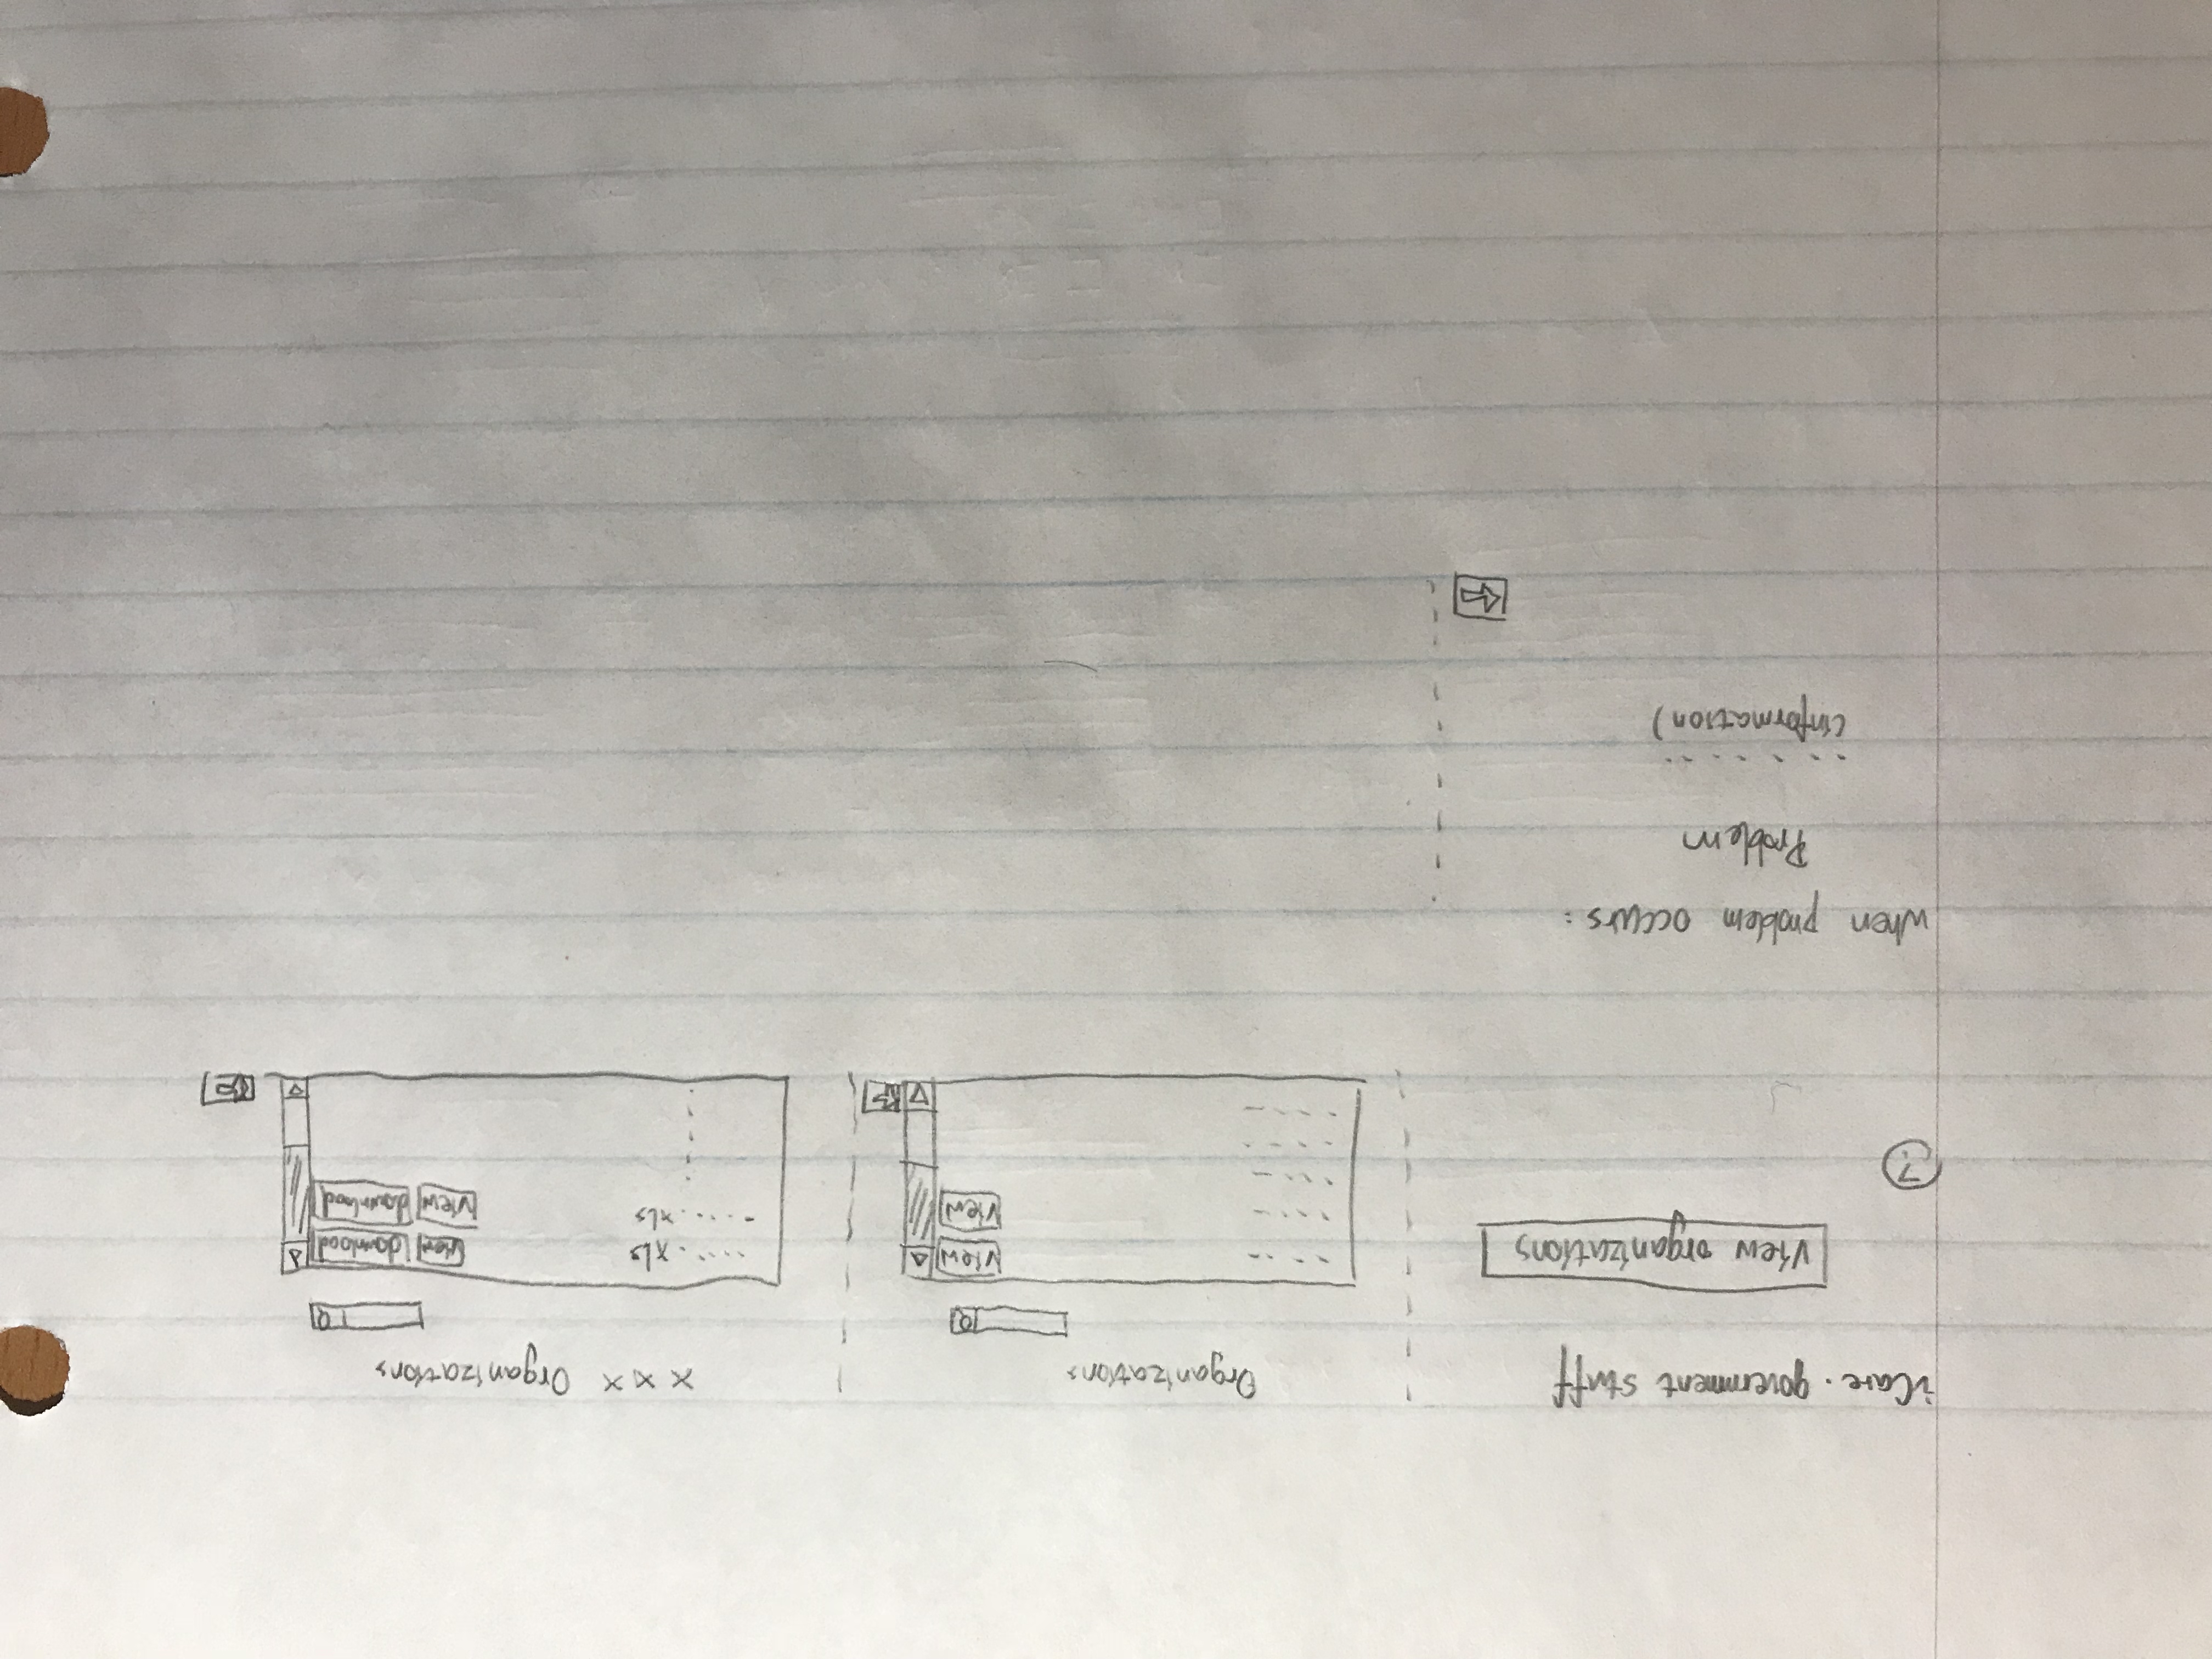 iCare. government stuff
View organizations
?
Organizations
view
view
x x x Organizations
.....xls
view download
-.....xls
view download
when problem occurs:
Problem
.......
(information)